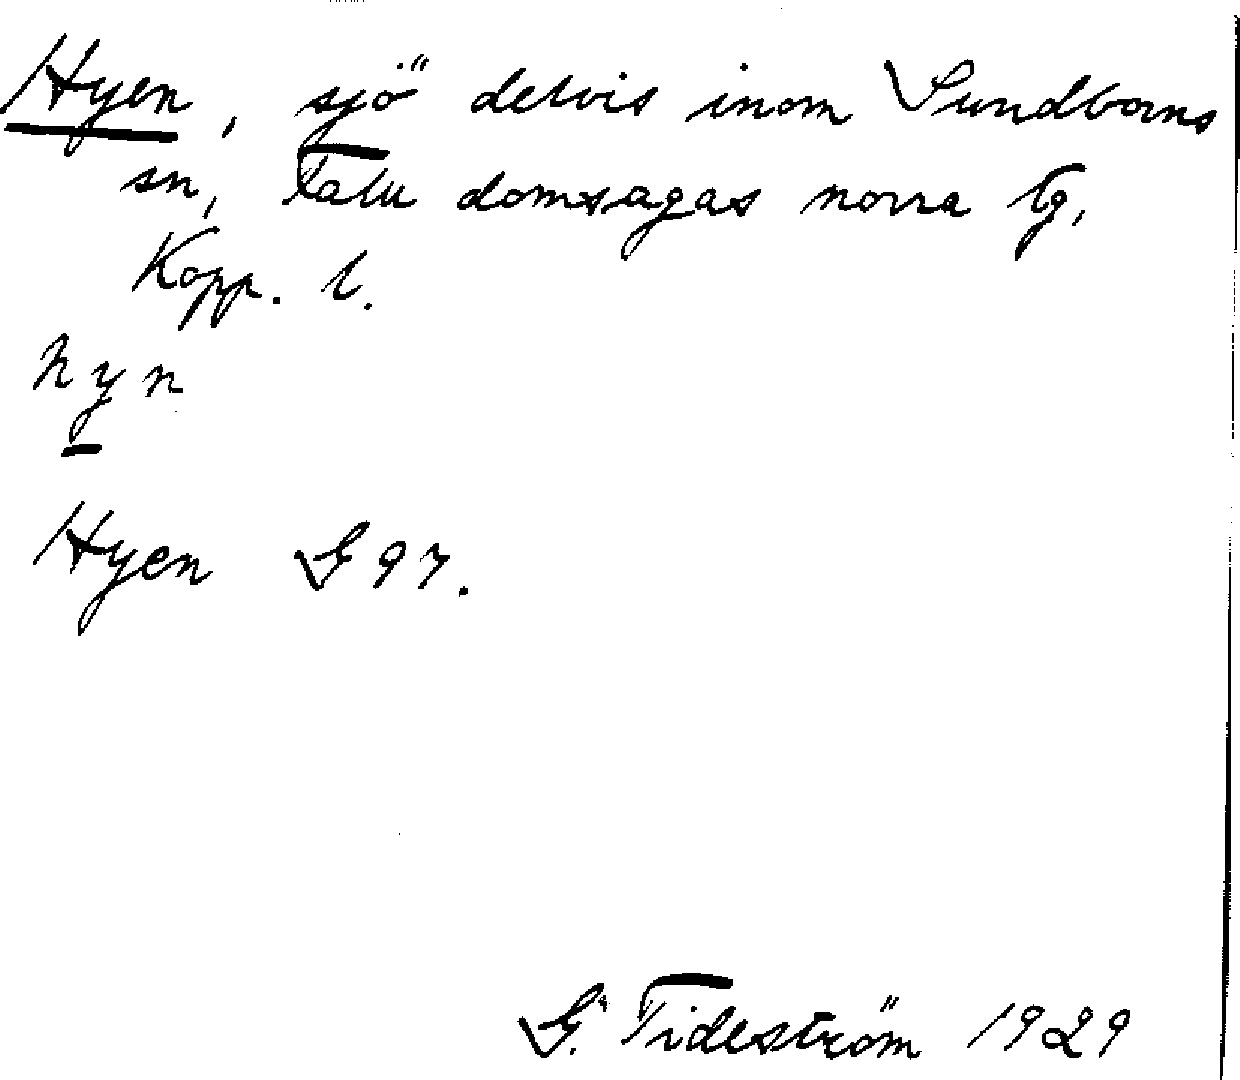 Hyen, sjö delvis inom Sundborns
sn, Falu domsagas norra tg,
Kopp. l.
hyn
Hyen G 97.
G. Tideström 1929